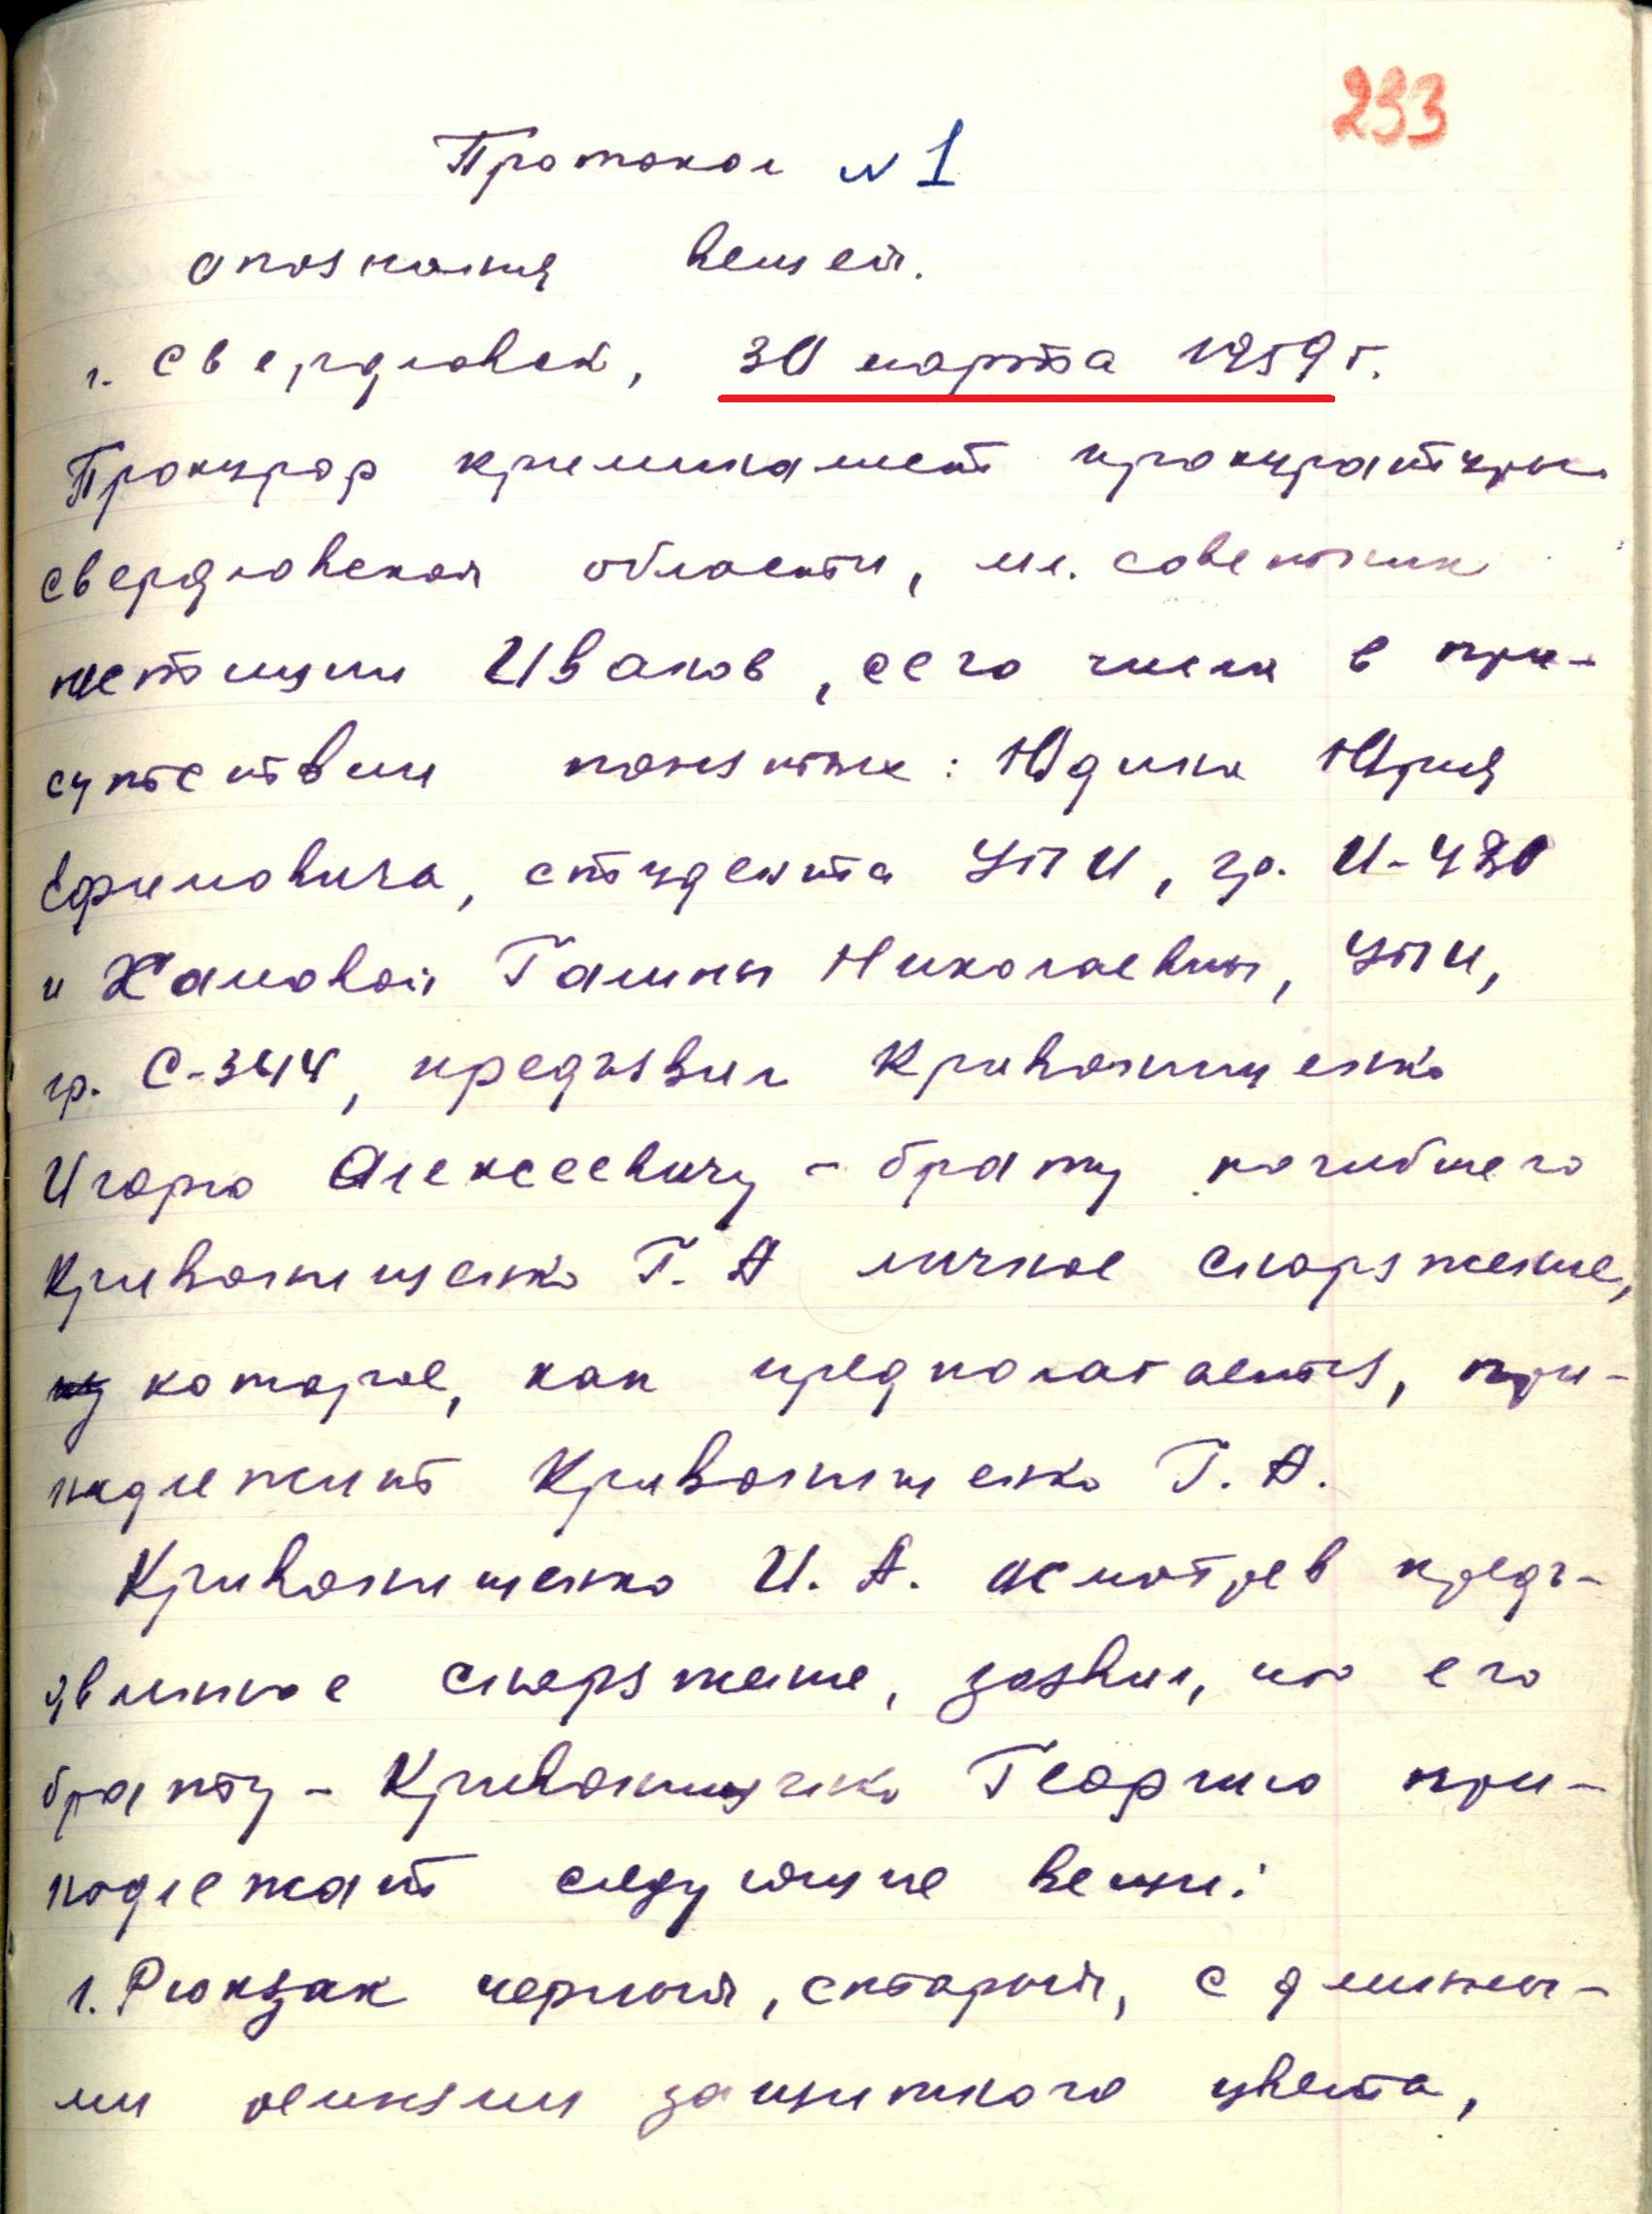 233
Протокол N 1
опознания вещей.
г. Свердловск, 30 марта 1959 г.
Прокурор криминалист прокуратуры
Свердловской области, мл. советник
юстиции Иванов, сего числа в при-
сутствии понятых: Юдина Юрия
Ефимовича, студента УПИ, гр. И-430
и Хамовой Галины Николаевны, УПИ,
гр. С-344, предъявил Кривонищенко
Игорю Алексеевичу - брату погибшего
Кривонищенко Г. А личное снаряжение,
которое, как предполагается, при-
надлежит Кривонищенко Г. А.
Кривонищенко И. А. осмотрев предъ-
явленное снаряжение, заявил, что его
брату - Кривонищенко Георгию при-
надлежат следующие вещи:
1. Рюкзак черный, старый, с длинны-
ми защитного цвета,